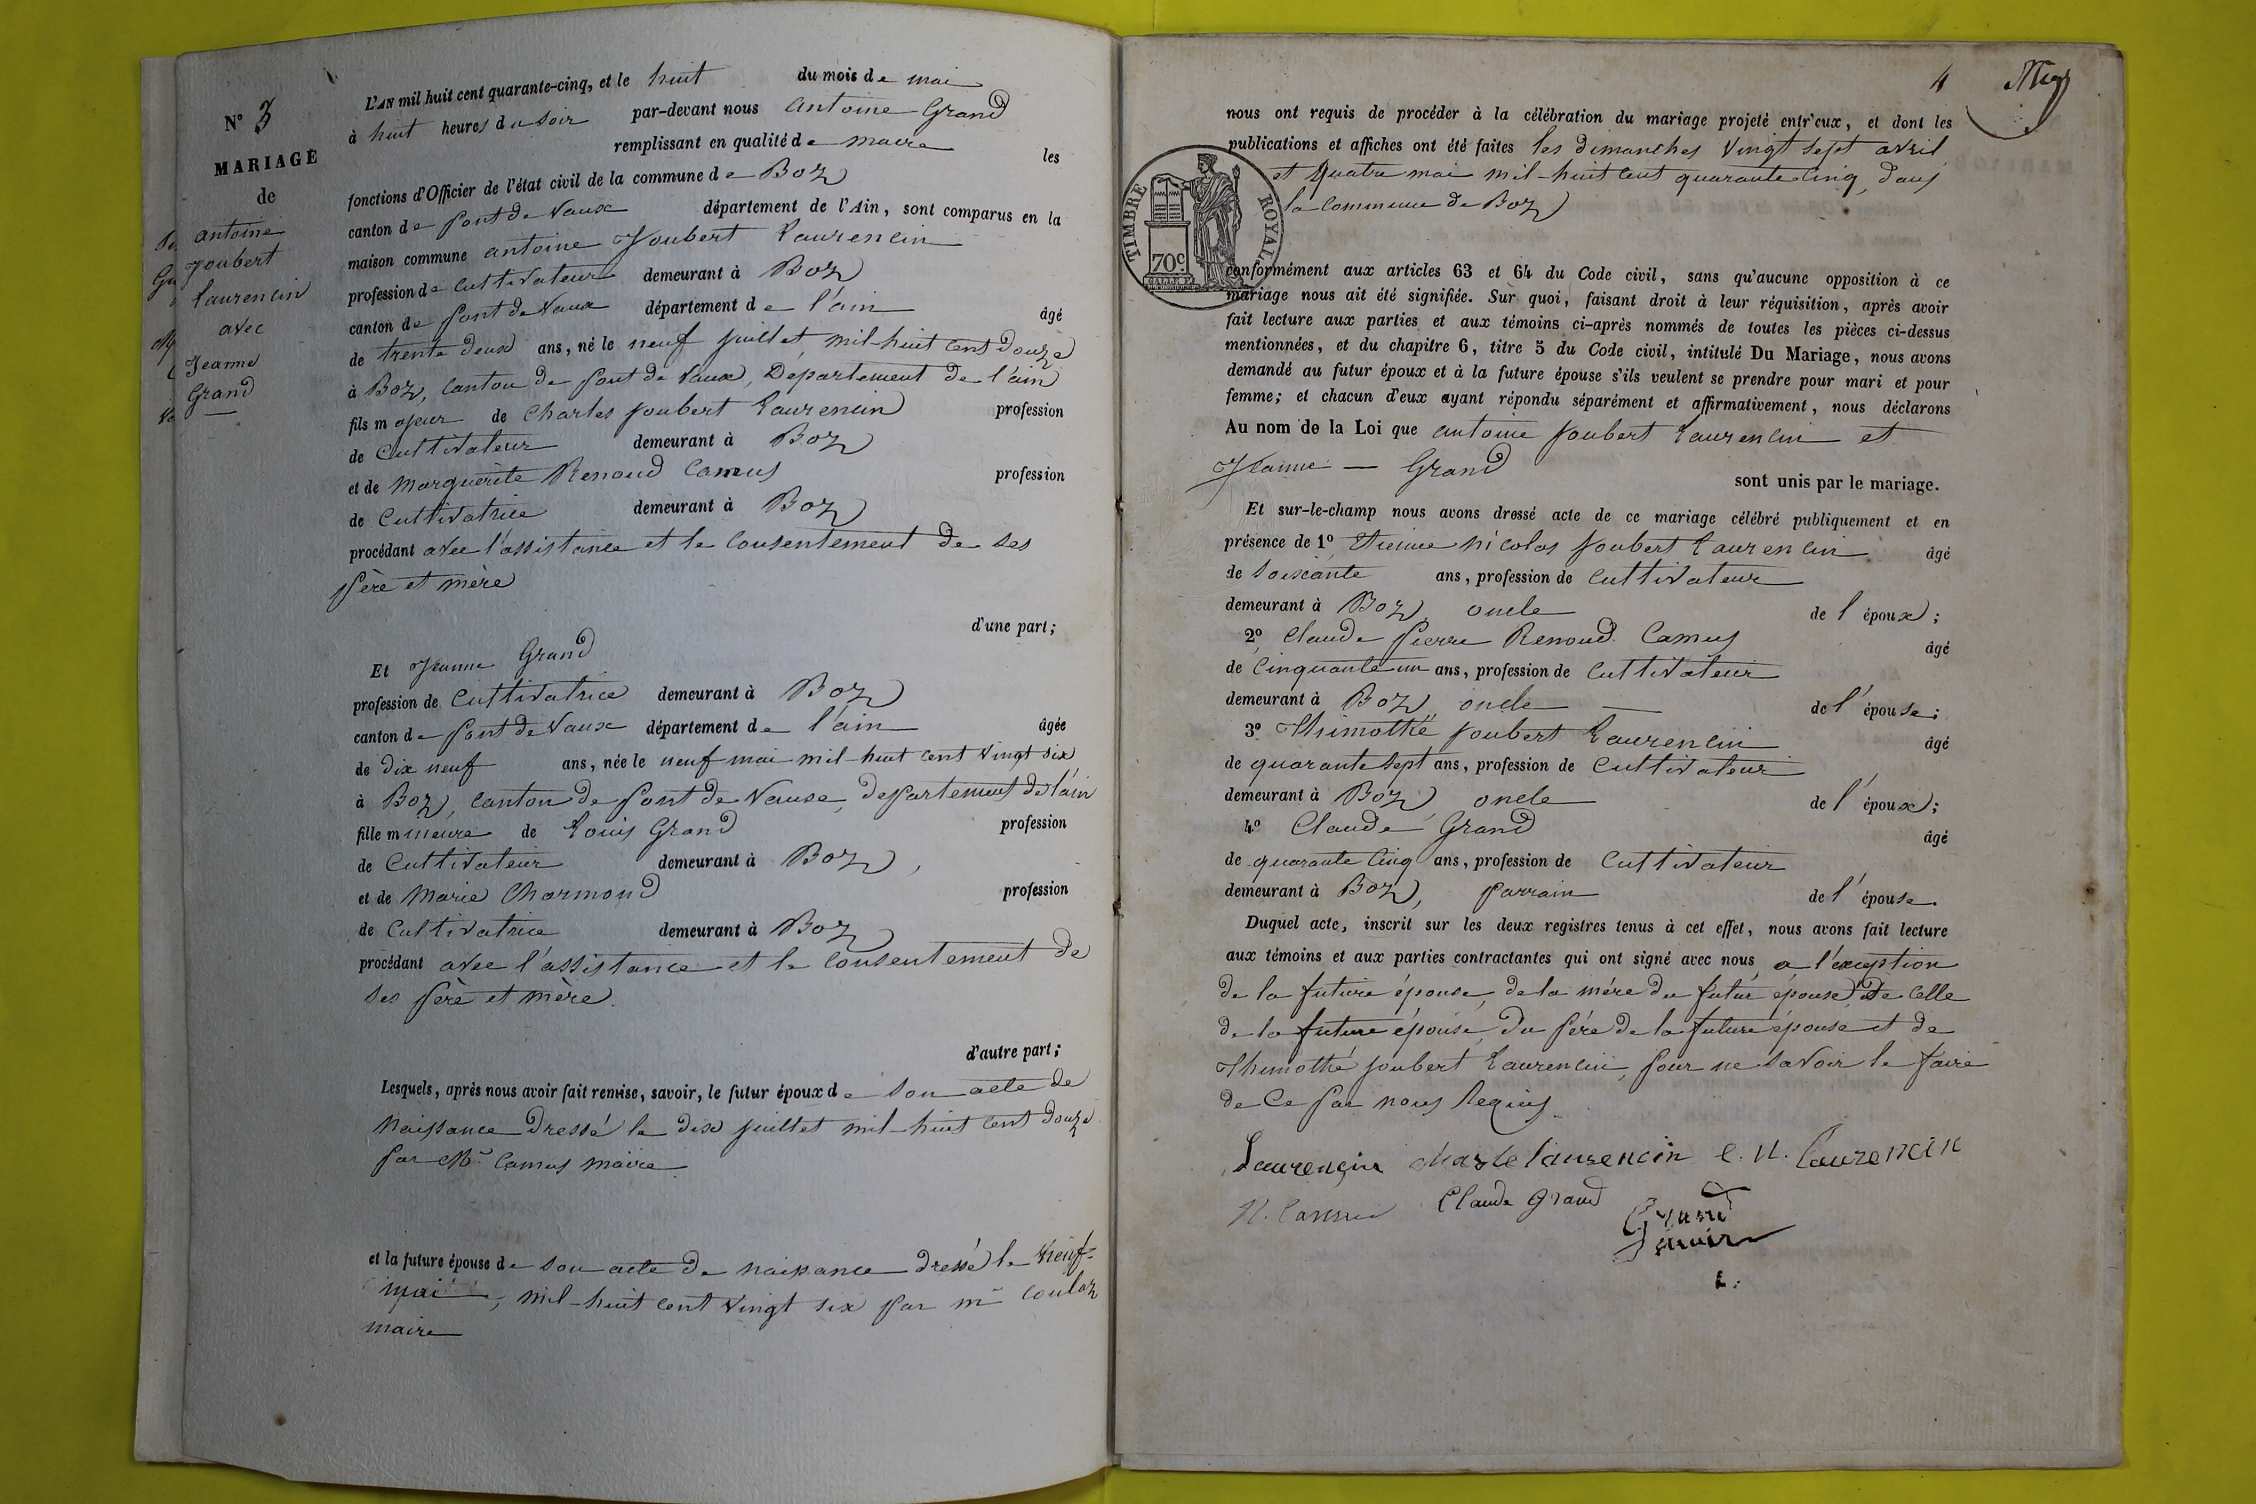 N° 3
MARIAGE
de
antoine
Joubert
laurencin
avec
Jeanne
Grand
L'AN mil huit cent quarante-cinq, et le huit du mois de mai
à huit heures du soir par-devant nous antoine Grand
remplissant en qualité de maire les
fonctions d'Officier de l'état civil de la commune de Boz
canton de pont de Vaux département de l'Ain, sont comparus en la
maison commune antoine Joubert Laurencin
profession de cultivateur demeurant à Boz
canton de pont de Vaux département de l'ain âgé
de trente deux ans, né le neuf juillet mil-huit cent douze
à Boz, canton de pont de vaux, Département de l'ain
fils majeur de Charles joubert Laurencin profession
de Cultivateur demeurant à Boz
et de Marguerite Renoud Camus profession
de Cultivatrice demeurant à Boz
procédant avec l'assistance et le consentement de ses
père et mère
d'une part;
Et Jeanne Grand
profession de Cultivatrice demeurant à Boz
canton de pont de Vaux département de l'ain âgée
de dix neuf ans, née le neuf mai mil-huit cent vingt six
à Boz, canton de pont de Vaux, département de l'ain
fille mineure de Louis Grand profession
de Cultivateur demeurant à Boz,
et de Marie Charmond profession
de Cultivatrice demeurant à Boz
procédant avec l'assistance et le consentement de
ses père et mère.
d'autre part;
Lesquels, après nous avoir fait remise, savoir, le futur époux de son acte de
naissance dressé le dix juillet mil-huit cent douze
par Mr Camus maire
et la future épouse de son acte de naissance dressé le neuf
mai, mil-huit cent vingt six par mr couloz
maire
4
nous ont requis de procéder à la célébration du mariage projeté entr'eux, et dont les
publications et affiches ont été faites les dimanches vingt sept avril
et quatre mai mil-huit cent quarante cinq, dans
la commune de Boz
TIMBRE ROYAL
70c
conformément aux articles 63 et 64 du Code civil, sans qu'aucune opposition à ce
mariage nous ait été signifiée. Sur quoi, faisant droit à leur réquisition, après avoir
fait lecture aux parties et aux témoins ci-après nommés de toutes les pièces ci-dessus
mentionnées, et du chapitre 6, titre 5 du Code civil, intitulé Du Mariage, nous avons
demandé au futur époux et à la future épouse s'ils veulent se prendre pour mari et pour
femme; et chacun d'eux ayant répondu séparément et affirmativement, nous déclarons
Au nom de la Loi que antoine joubert Laurencin et
Jeanne — Grand
sont unis par le mariage.
Et sur-le-champ nous avons dressé acte de ce mariage célébré publiquement et en
présence de 1° Etienne nicolas joubert Laurencin âgé
de soixante ans, profession de cultivateur
demeurant à Boz, oncle de l'époux;
2° Claude pierre Renoud Camus âgé
de cinquante un ans, profession de cultivateur
demeurant à Boz oncle — de l'épouse;
3° Thimothé joubert Laurencin âgé
de quarante sept ans, profession de cultivateur
demeurant à Boz, oncle de l'époux;
4° Claude Grand âgé
de quarante cinq ans, profession de cultivateur
demeurant à Boz, parrain de l'épouse.
Duquel acte, inscrit sur les deux registres tenus à cet effet, nous avons fait lecture
aux témoins et aux parties contractantes qui ont signé avec nous a l'exception
de la future épouse, de la mére du futur epoux, de celle
de la future épouse, du pére de la future épouse et de
Thimothé joubert Laurencin, pour ne savoir le faire
de ce par nous Requis
Laurençin Charle laurencin e. N. Laurencin
Claude grand
Grand